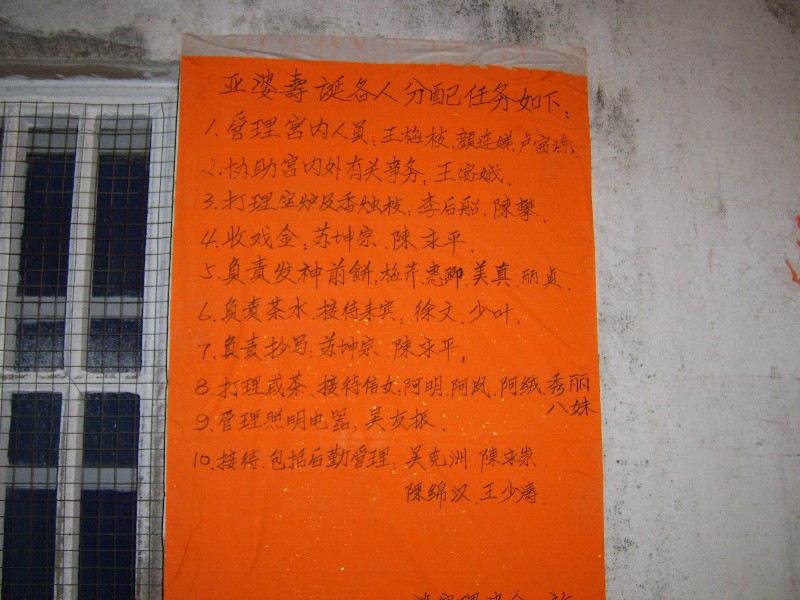 亚婆壽诞各人分配任务如下:
1.管理宫内人員:王梅枝.顏连娣.卢富珠.
2.协助宫内外有关事务:王富娥.
3.打理宝炉及香烛枝:李后船.陳攀.
4.收戏金:苏坤宗.陳永平.
5.负責发神前餅:梅芹.惠卿.美真.丽贞
6.负責茶水.接待来宾:徐文.少叶.
7.负責抄写:苏坤宗.陳永平.
8.打理咸茶.接待信女:阿明.阿凤.阿絨.秀丽
八妹
9.管理照明电器:吴友振.
10.接待.包括后勤管理:吴克洲 陳永崇.
陳綿汉.王少涛.